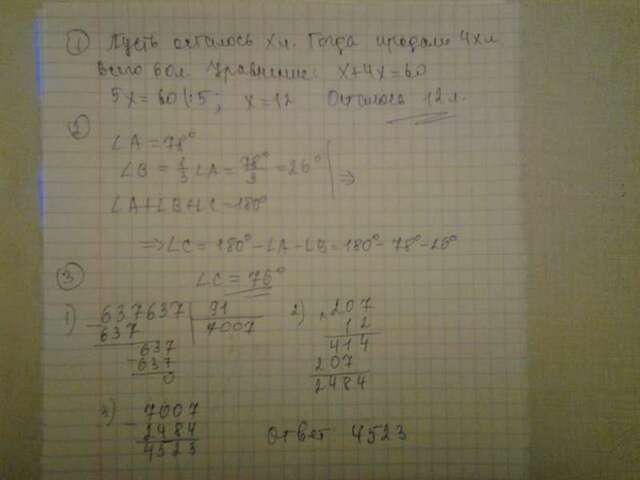 ① Пусть осталось x л. Тогда продали 4x л
Всего 60 л. Уравнение: x+4x=60
5x=60 |:5; x=12 Осталось 12 л.
②
∠A=78°
∠B=1/3∠A=78°/3=26° ⇒
∠A+∠B+∠C=180°
⇒∠C=180°-∠A-∠B=180°-78°-26°
∠C=76°
③
1) 637637 | 91
637 7007
637
-637
0
2) ×207
12
414
207
2484
3) 7007
- 2484
4523
Ответ 4523